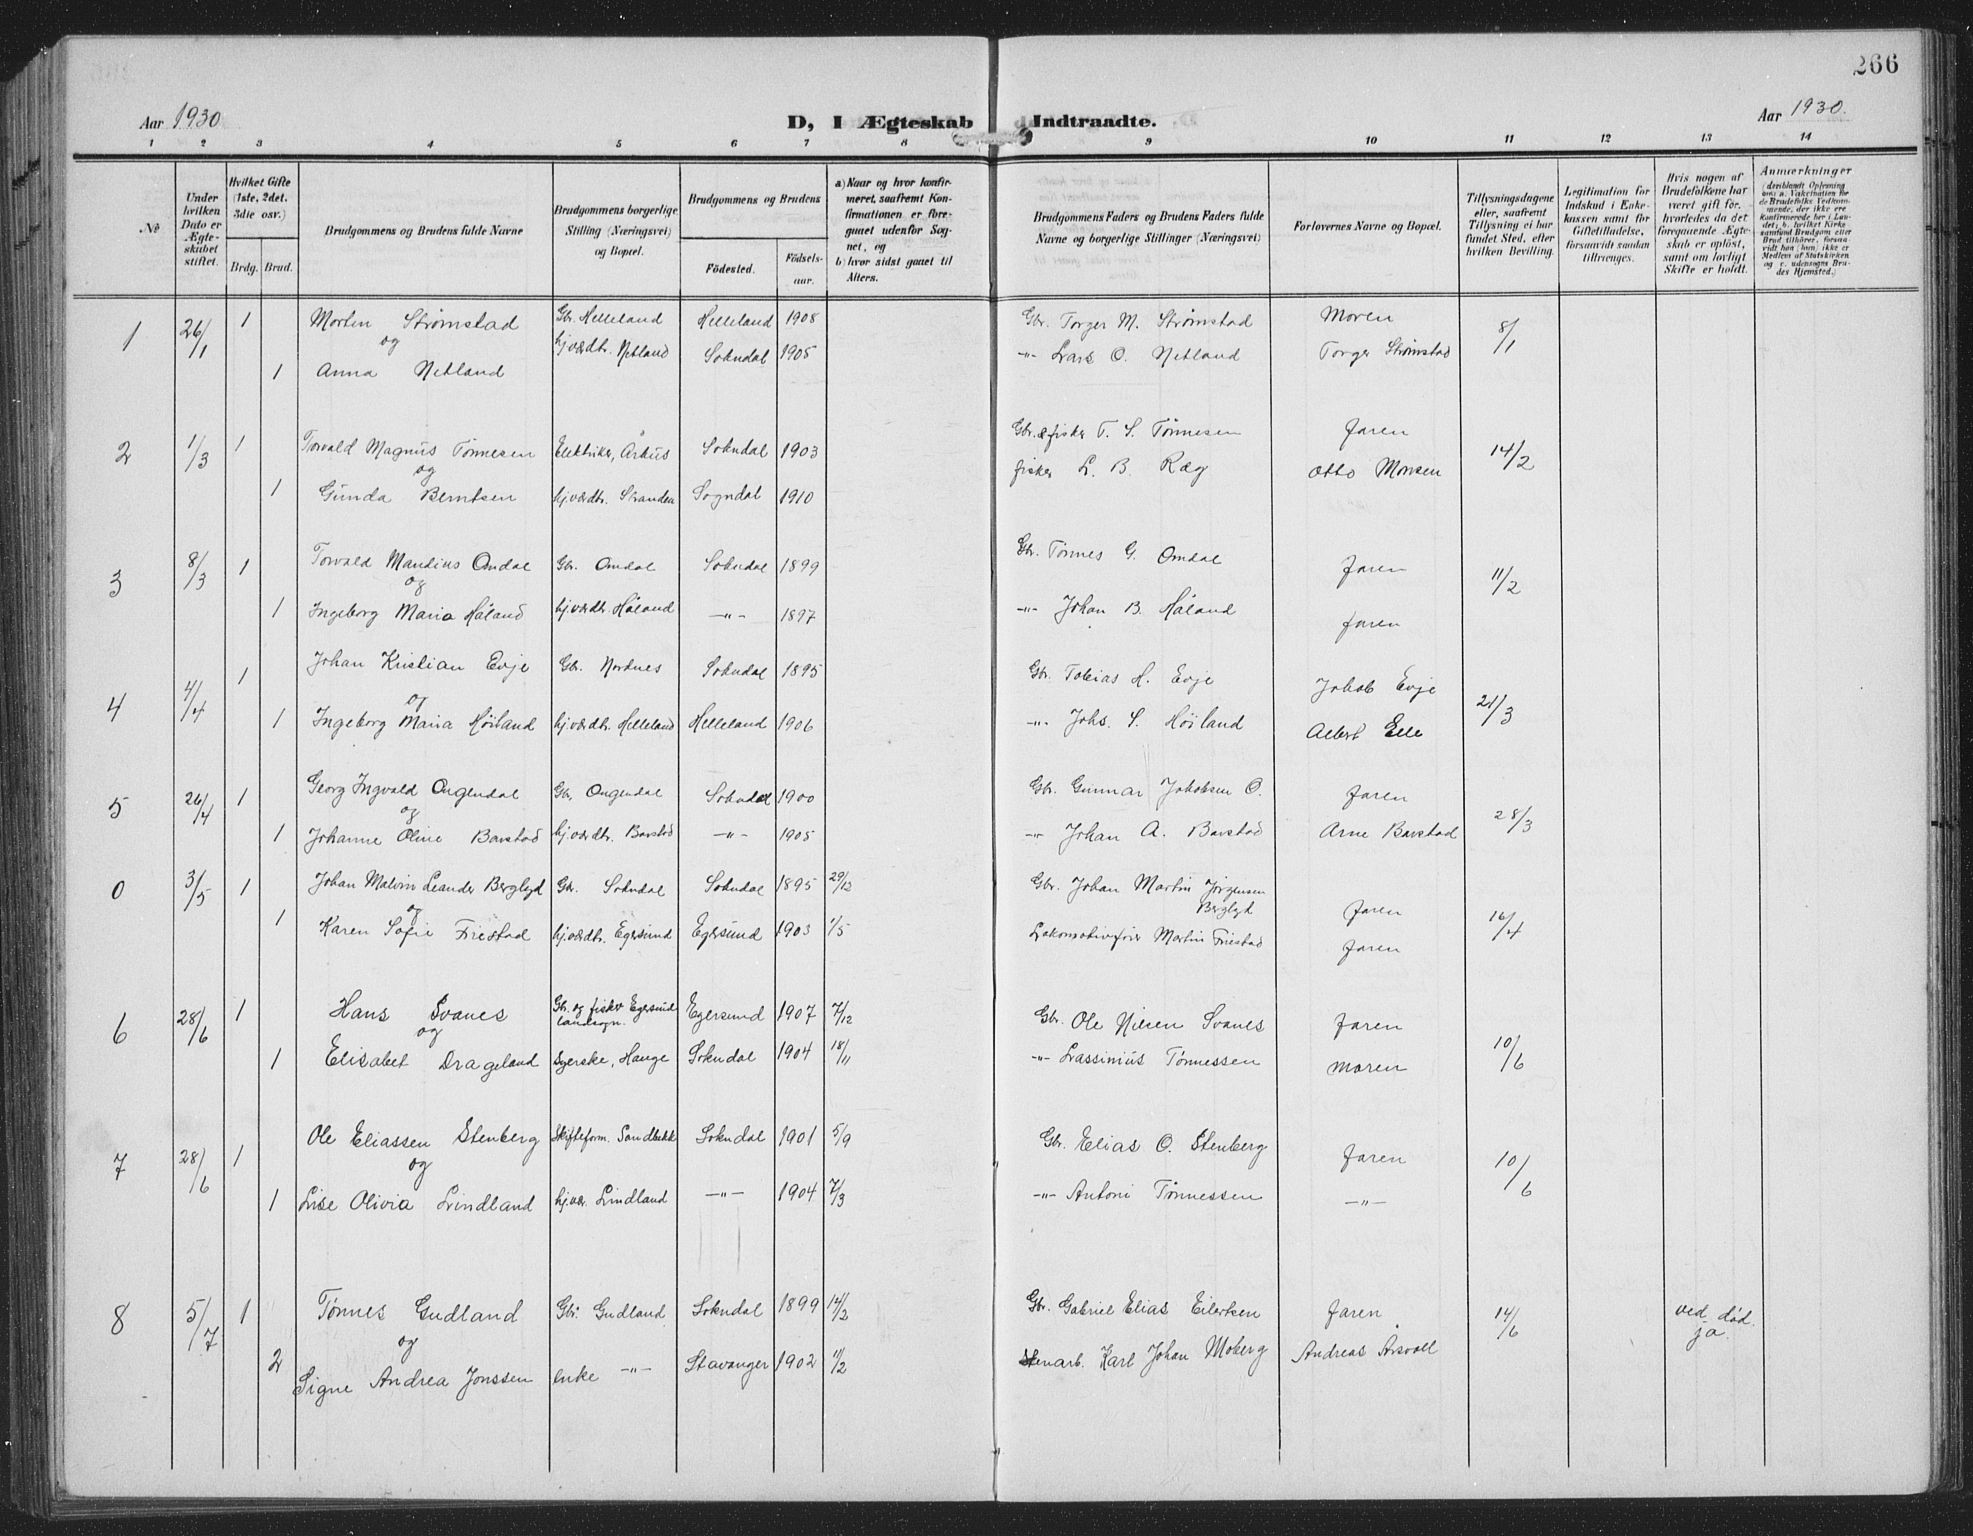 266
Aar 1930
D, I Ægteskab Indtraadte.
Aar 1930.
1 2 3 4 5 6 7 8 9 10 11 12 13 14
No
Under hvilken Dato er Ægteskabet stiftet.
Hvilket Gifte (1ste, 2det. 3die osv.)
Brdg. Brud.
Brudgommens og Brudens fulde Navne
Brudgommens borgerlige Stilling (Næringsvei) og Bopæl.
Brudgommens og Brudens
Födested.
Födselsaar.
a) Naar og hvor konfirmeret, saafremt Konfirmationen er foregaaet udenfor Sognet, og
b) hvor sidst gaaet til Alters.
Brudgommens Faders og Brudens Faders fulde Navne og borgerlige Stillinger (Næringsvei)
Forlovernes Navne og Bopæl.
Tillysningsdagene eller, saafremt Tillysning ei har fundet Sted, efter hvilken Bevilling.
Legitimation for Indskud i Enkekassen samt for Giftetilladelse, forsaavidt saadan tiltrænges.
Hvis nogen af Brudefolkene har været gift för, hvorledes da det foregaaende Ægteskab er oplöst, samt om lovligt Skifte er holdt.
Anmerkninger
1 26/1 1 Morten Strømstad Gbr. Helleland Helleland 1908 Gbr. Torger M. Strømstad Moren 8/1
og
1 Anna Netland hj.værdt. Netland Sokndal 1905 -"- Lars O. Netland Torger Strømstad
2 1/3 1 Torvald Magnus Tønnesen Elektriker, Århus Sokndal 1903 Gbr. & fisker T. S. Tønnesen faren 14/2
og
1 Gunda Berntsen hj.værdt. Stranden Sogndal 1910 fisker L. B. Ræg Otto Monsen
3 8/3 1 Torvald Mandius Omdal Gbr. Omdal Sokndal 1899 Gbr. Tønnes G. Omdal faren 11/2
og
1 Ingeborg Maria Håland hj.værdt. Håland -"- 1897 -"- Johan B. Håland faren
4 4/4 1 Johan Kristian Evje Gbr. Nordnes Sokndal 1895 Gbr. Tobias H. Evje Jakob Evje 21/3
og
1 Ingeborg Maria Høiland hj.værdt. Helleland Helleland 1906 -"- Johs. S. Høiland Albert Eell
5 26/4 1 Georg Ingvald Ougendal Gbr. Ougendal Sokndal 1900 Gbr. Gunnar Jakobsen O. faren 28/3
og
1 Johanne Oline Barstad hj.værdt. Barstad -"- 1905 -"- Johan A. Barstad Arne Barstad
0 3/5 1 Johan Malvin Leander Berglyd Gbr. Sokndal Sokndal 1895 29/12 Gbr. Johan Martin Jørgensen Berglyd faren 16/4
og
1 Karen Sofie Friestad hj.værdt. Egersund Egersund 1903 1/5 Lokomotivfører Martin Friestad faren
6 28/6 1 Hans Svanes Gbr. og fisker Egersund landsogn. Egersund 1907 7/12 Gbr. Ole Nilsen Svanes faren 10/6
og
1 Elisabet Drageland Syerske, Hauge Sokndal 1904 18/11 -"- Lassinius Tønnessen moren
7 28/6 1 Ole Eliassen Stenberg Skifteform. Sandbekk Sokndal 1901 5/9 Gbr. Elias O. Stenberg faren 10/6
og
1 Lise Olivia Lindland hj.vær. Lindland -"- 1904 7/3 -"- Antoni Tønnessen -"-
8 5/7 1 Tønnes Gudland Gbr. Gudland Sokndal 1899 14/2 Gbr. Gabriel Elias Eilertsen faren 14/6 ved død. ja.
og
2 Signe Andrea Jonssen enke -"- Stavanger 1902 11/2 Stenarb. Karl Johan Moberg Andreas Åsvoll